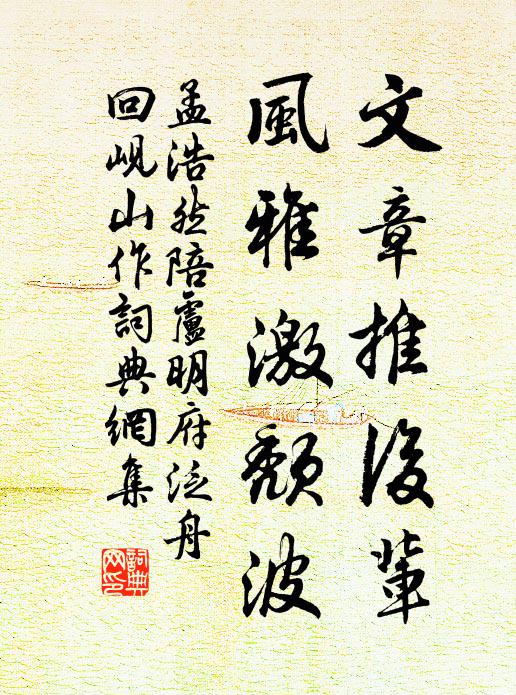 文章推後輩
風雅激頹波
孟浩然陪盧明府泛舟
回峴山作詞典網集
詞典
网印